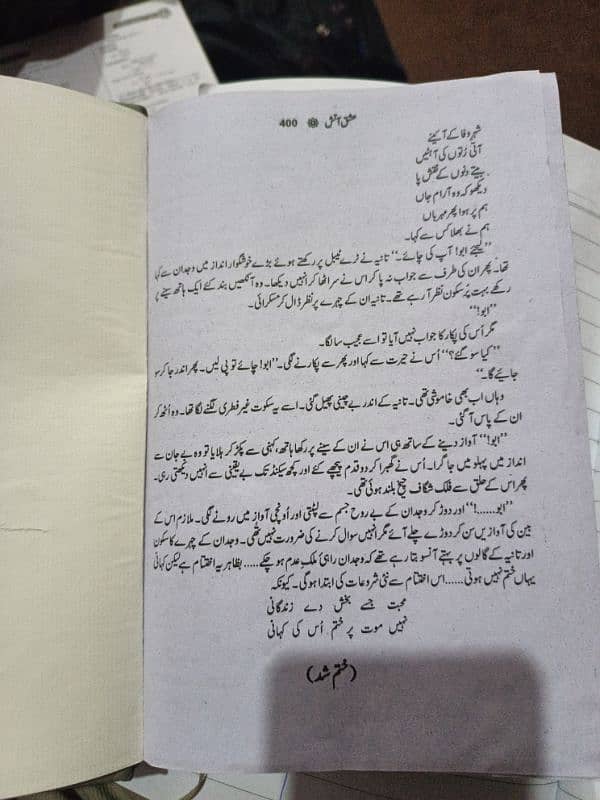 عشق آتش ❁ 400
شہرِ وفا کے آئینے
آتی رُتوں کی آہٹیں
بیتے دنوں کے نقشِ پا
دیکھو کہ وہ آرامِ جاں
ہم پر ہوا پھر مہرباں
ہم نے بھلا کس سے کہا۔
”لیجئے ابو! آپ کی چائے۔“ تانیہ نے ٹرے ٹیبل پر رکھتے ہوئے بڑے خوشگوار انداز میں وجدان سے کہا
تھا۔ پھر ان کی طرف سے جواب نہ پا کر اس نے سر اٹھا کر انہیں دیکھا۔ وہ آنکھیں بند کئے ایک ہاتھ سینے پر
رکھے بہت پُرسکون نظر آ رہے تھے۔ تانیہ ان کے چہرے پر نظر ڈال کر مسکرائی۔
”ابو!“
مگر اُس کی پکار کا جواب نہیں آیا تو اسے عجیب سا لگا۔
”کیا سو گئے؟“ اُس نے حیرت سے کہا اور پھر سے پکارنے لگی۔ ”ابو! چائے تو پی لیں۔ پھر اندر جا کر سو
جائیے گا۔“
وہاں اب بھی خاموشی تھی۔ تانیہ کے اندر بے چینی پھیل گئی۔ اسے یہ سکوت غیر فطری لگنے لگا تھا۔ وہ اُٹھ کر
ان کے پاس آ گئی۔
”ابو!“ آواز دینے کے ساتھ ہی اس نے ان کے سینے پر رکھا ہاتھ، کہنی سے پکڑ کر ہلایا تو وہ بے جان سے
انداز میں پہلو میں جا گرا۔ اُس نے گھبرا کر دو قدم پیچھے کئے اور کچھ سیکنڈ تک بے یقینی سے انہیں دیکھتی رہی۔
پھر اس کے حلق سے فلک شگاف چیخ بلند ہوئی تھی۔
”ابو......!“ اور دوڑ کر وجدان کے بے روح جسم سے لپٹتی اور اُونچی آواز میں رونے لگی۔ ملازم اس کے
بین کی آوازیں سن کر دوڑے چلے آئے مگر انہیں سوال کرنے کی ضرورت نہیں تھی۔ وجدان کے چہرے کا سکون
اور تانیہ کے گالوں پر بہتے آنسو بتا رہے تھے کہ وجدان راہیٔ ملکِ عدم ہو چکے..... بظاہر یہ اختتام ہے لیکن کہانی
یہاں ختم نہیں ہوتی......اس اختتام سے نئی شروعات کی ابتدا ہو گی۔ کیونکہ
محبت جسے بخش دے زندگانی
نہیں موت پر ختم اُس کی کہانی
(ختم شد)